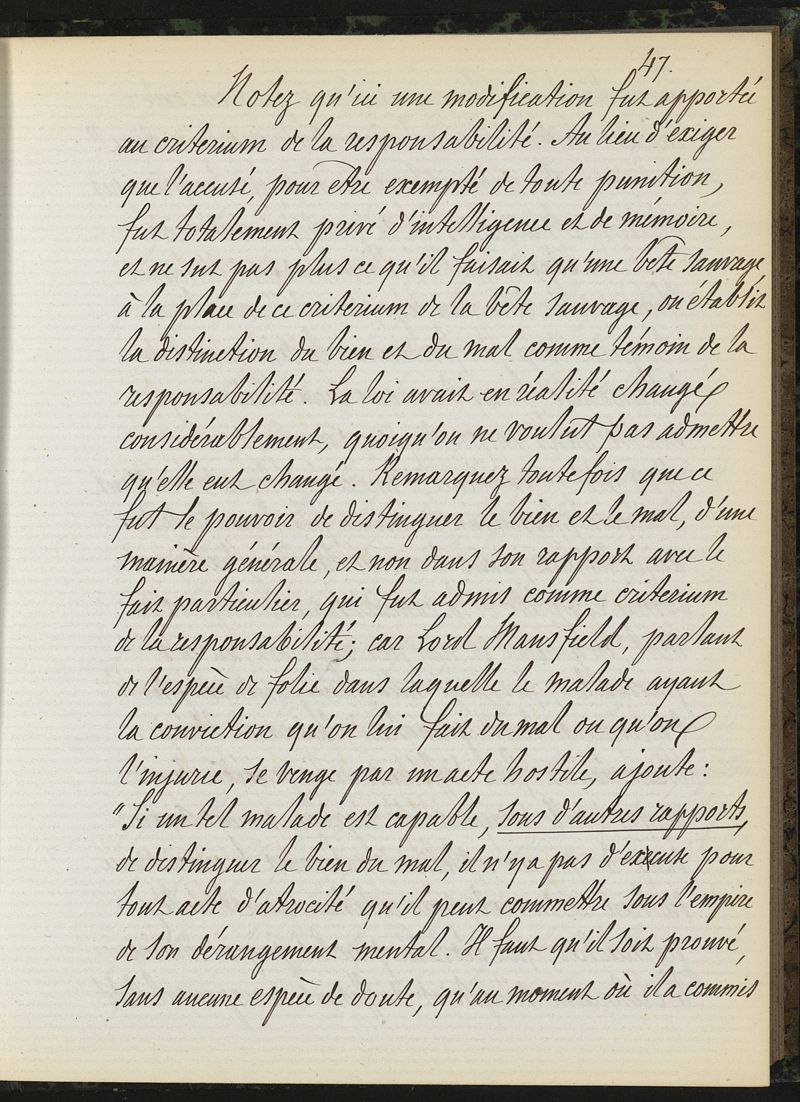 47.
Notez qu'ici une modification fut apportée
au criterium de la responsabilité. Au lieu d'exiger
que l'accusé, pour être exempté de toute punition,
fut totalement privé d'intelligence et de mémoire,
et ne sut pas plus ce qu'il faisait qu'une bête sauvage,
à la place de ce criterium de la bête sauvage, on établit
la distinction du bien et du mal comme témoin de la
responsabilité. La loi avait en réalité changé
considérablement, quoiqu'on ne voulut pas admettre
qu'elle eut changé. Remarquez toutefois que ce
fut le pouvoir de distinguer le bien et le mal, d'une
manière générale, et non dans son rapport avec le
fait particulier, qui fut admis comme criterium
de la responsabilité; car Lord Mansfield, parlant
de l'espèce de folie dans laquelle le malade ayant
la conviction qu'on lui fait du mal ou qu'on
l'injurie, se venge par un acte hostile, ajoute:
"Si un tel malade est capable, sous d'autres rapports,
de distinguer le bien du mal, il n'y a pas d'excuse pour
tout acte d'atrocité qu'il peut commettre sous l'empire
de son dérangement mental. Il faut qu'il soit prouvé,
sans aucune espèce de doute, qu'au moment où il a commis